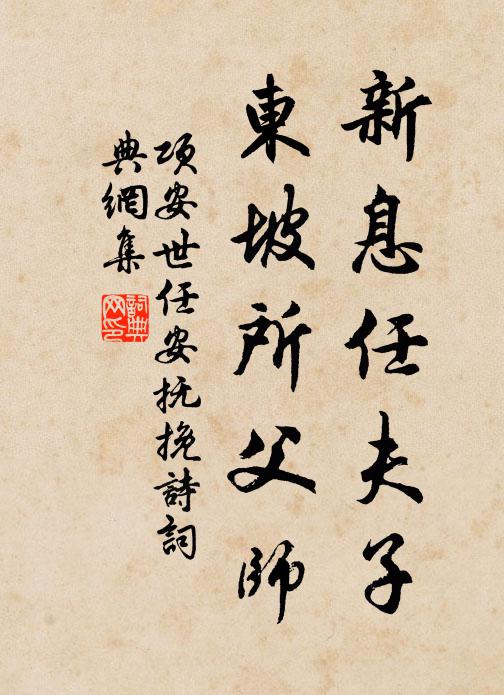 新息任夫子
東坡所父師
項安世任安抚挽詩詞
典網集
詞典
网印